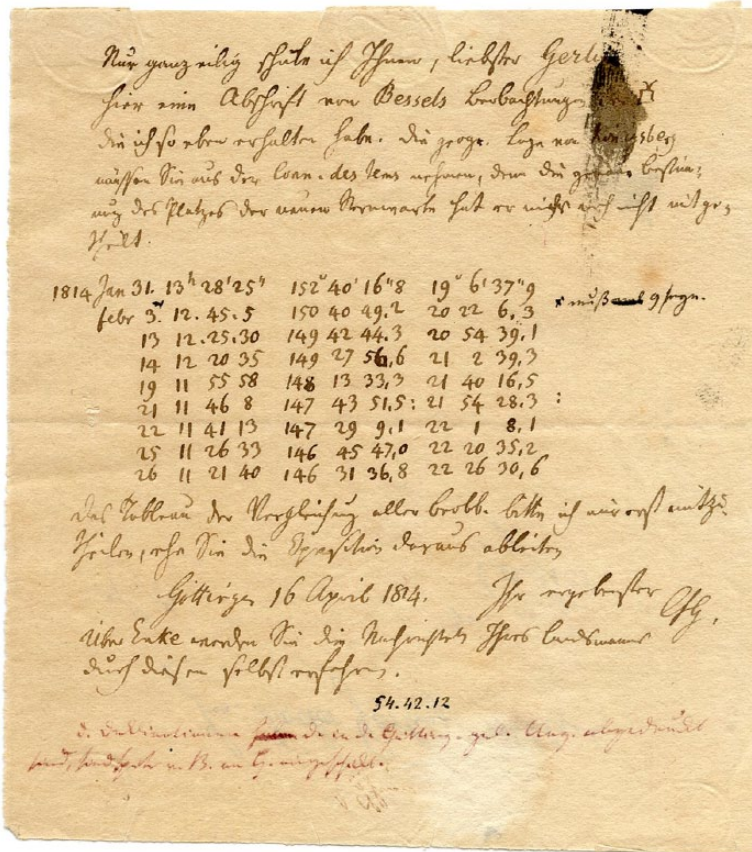 Nur ganz eilig schicke ich Ihnen, liebster Gerling
hier eine Abschrift von Bessels Beobachtungen der
die ich so eben erhalten habe. Die geogr. Länge von Königsberg
müssen Sie aus der Conn. des Tems nehmen, denn die genaue Bestim-
mung des Platzes der neuen Sternwarte hat er noch nicht mitge-
theilt.
1814 Jan 31. 13h 28' 25" 152° 40' 16"8 19° 6' 37"9
Febr 3. 12. 45. 5 150 40 49,2 20 22 6,3 x muß 9 seyn.
13 12. 25. 30 149 42 44.3 20 54 39,1
14 12 20 35 149 27 56,6 21 2 39,3
19 11 55 58 148 13 33,3 21 40 16,5
21 11 46 8 147 43 51,5: 21 54 28.3 :
22 11 41 13 147 29 9,1 22 1 8,1
25 11 26 33 146 45 47,0 22 20 35,2
26 11 21 40 146 31 36,8 22 26 30,6
Das Tableau der Vergleichung aller Beobb. bitte ich mir erst mitzu-
theilen, ehe Sie die Opposition daraus ableiten
Göttingen 16 April 1814. Ihr ergebenster CFG.
Über Enke werden Sie die Nachrichten Ihres Landsmanns
durch diesen selbst erfahren.
54.42.12
d. Declinationen die in d. Götting. gel. Anz. abgedruckt
sind, sind später v. B. an G. eingeschickt.